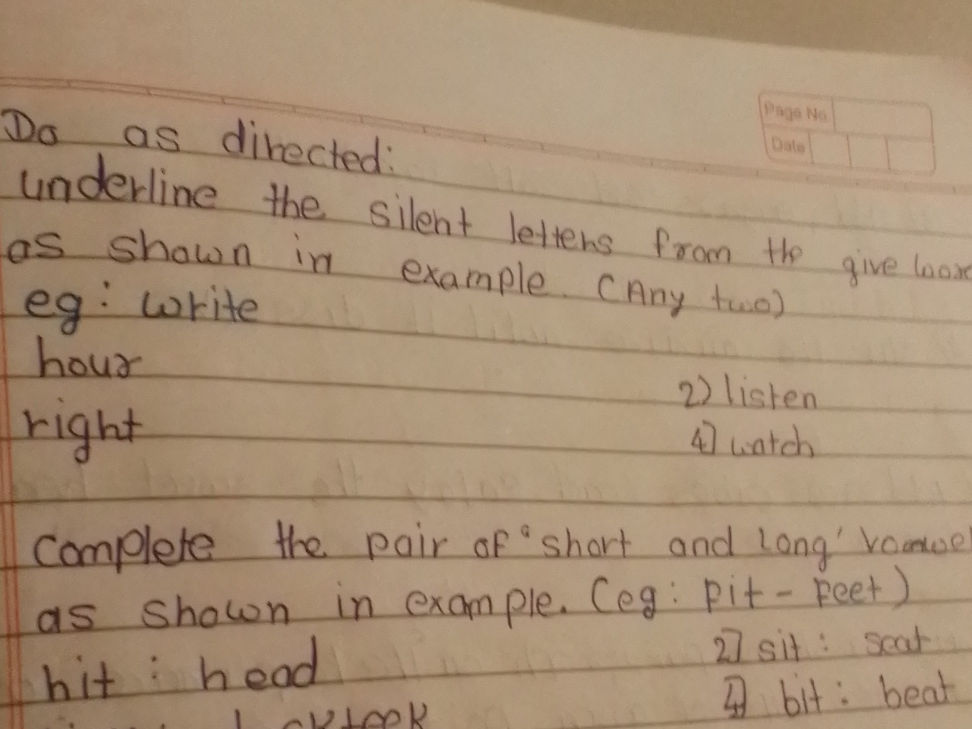 Page No
Date
Do as directed:
underline the silent letters from the give
as shown in example. (Any two)
eg: write
hour
2) listen
right
4) watch
Complete the pair of "short and long'
as shown in example. (eg: pit - peet)
hit : head
2) sit : seat
4) bit : beat